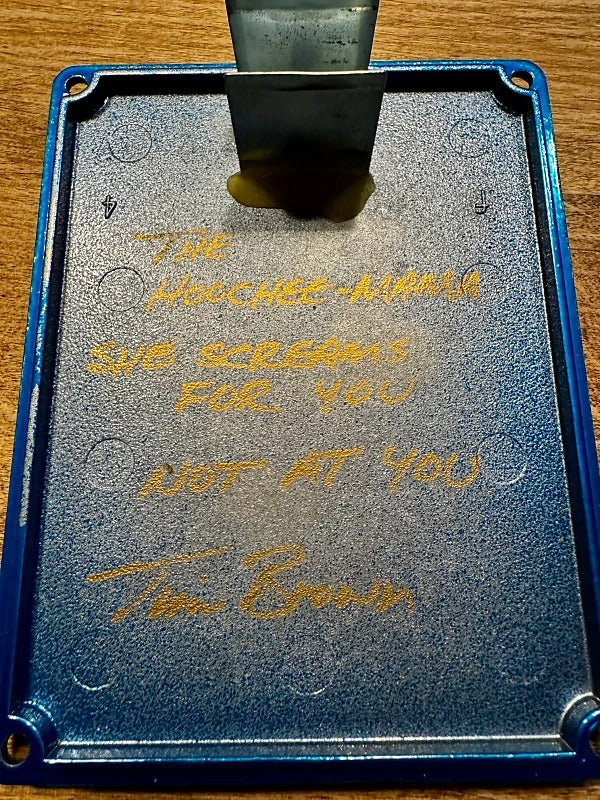 THE
HOOCHEE-MAMA
SHE SCREAMS
FOR YOU
NOT AT YOU
Tim Brown